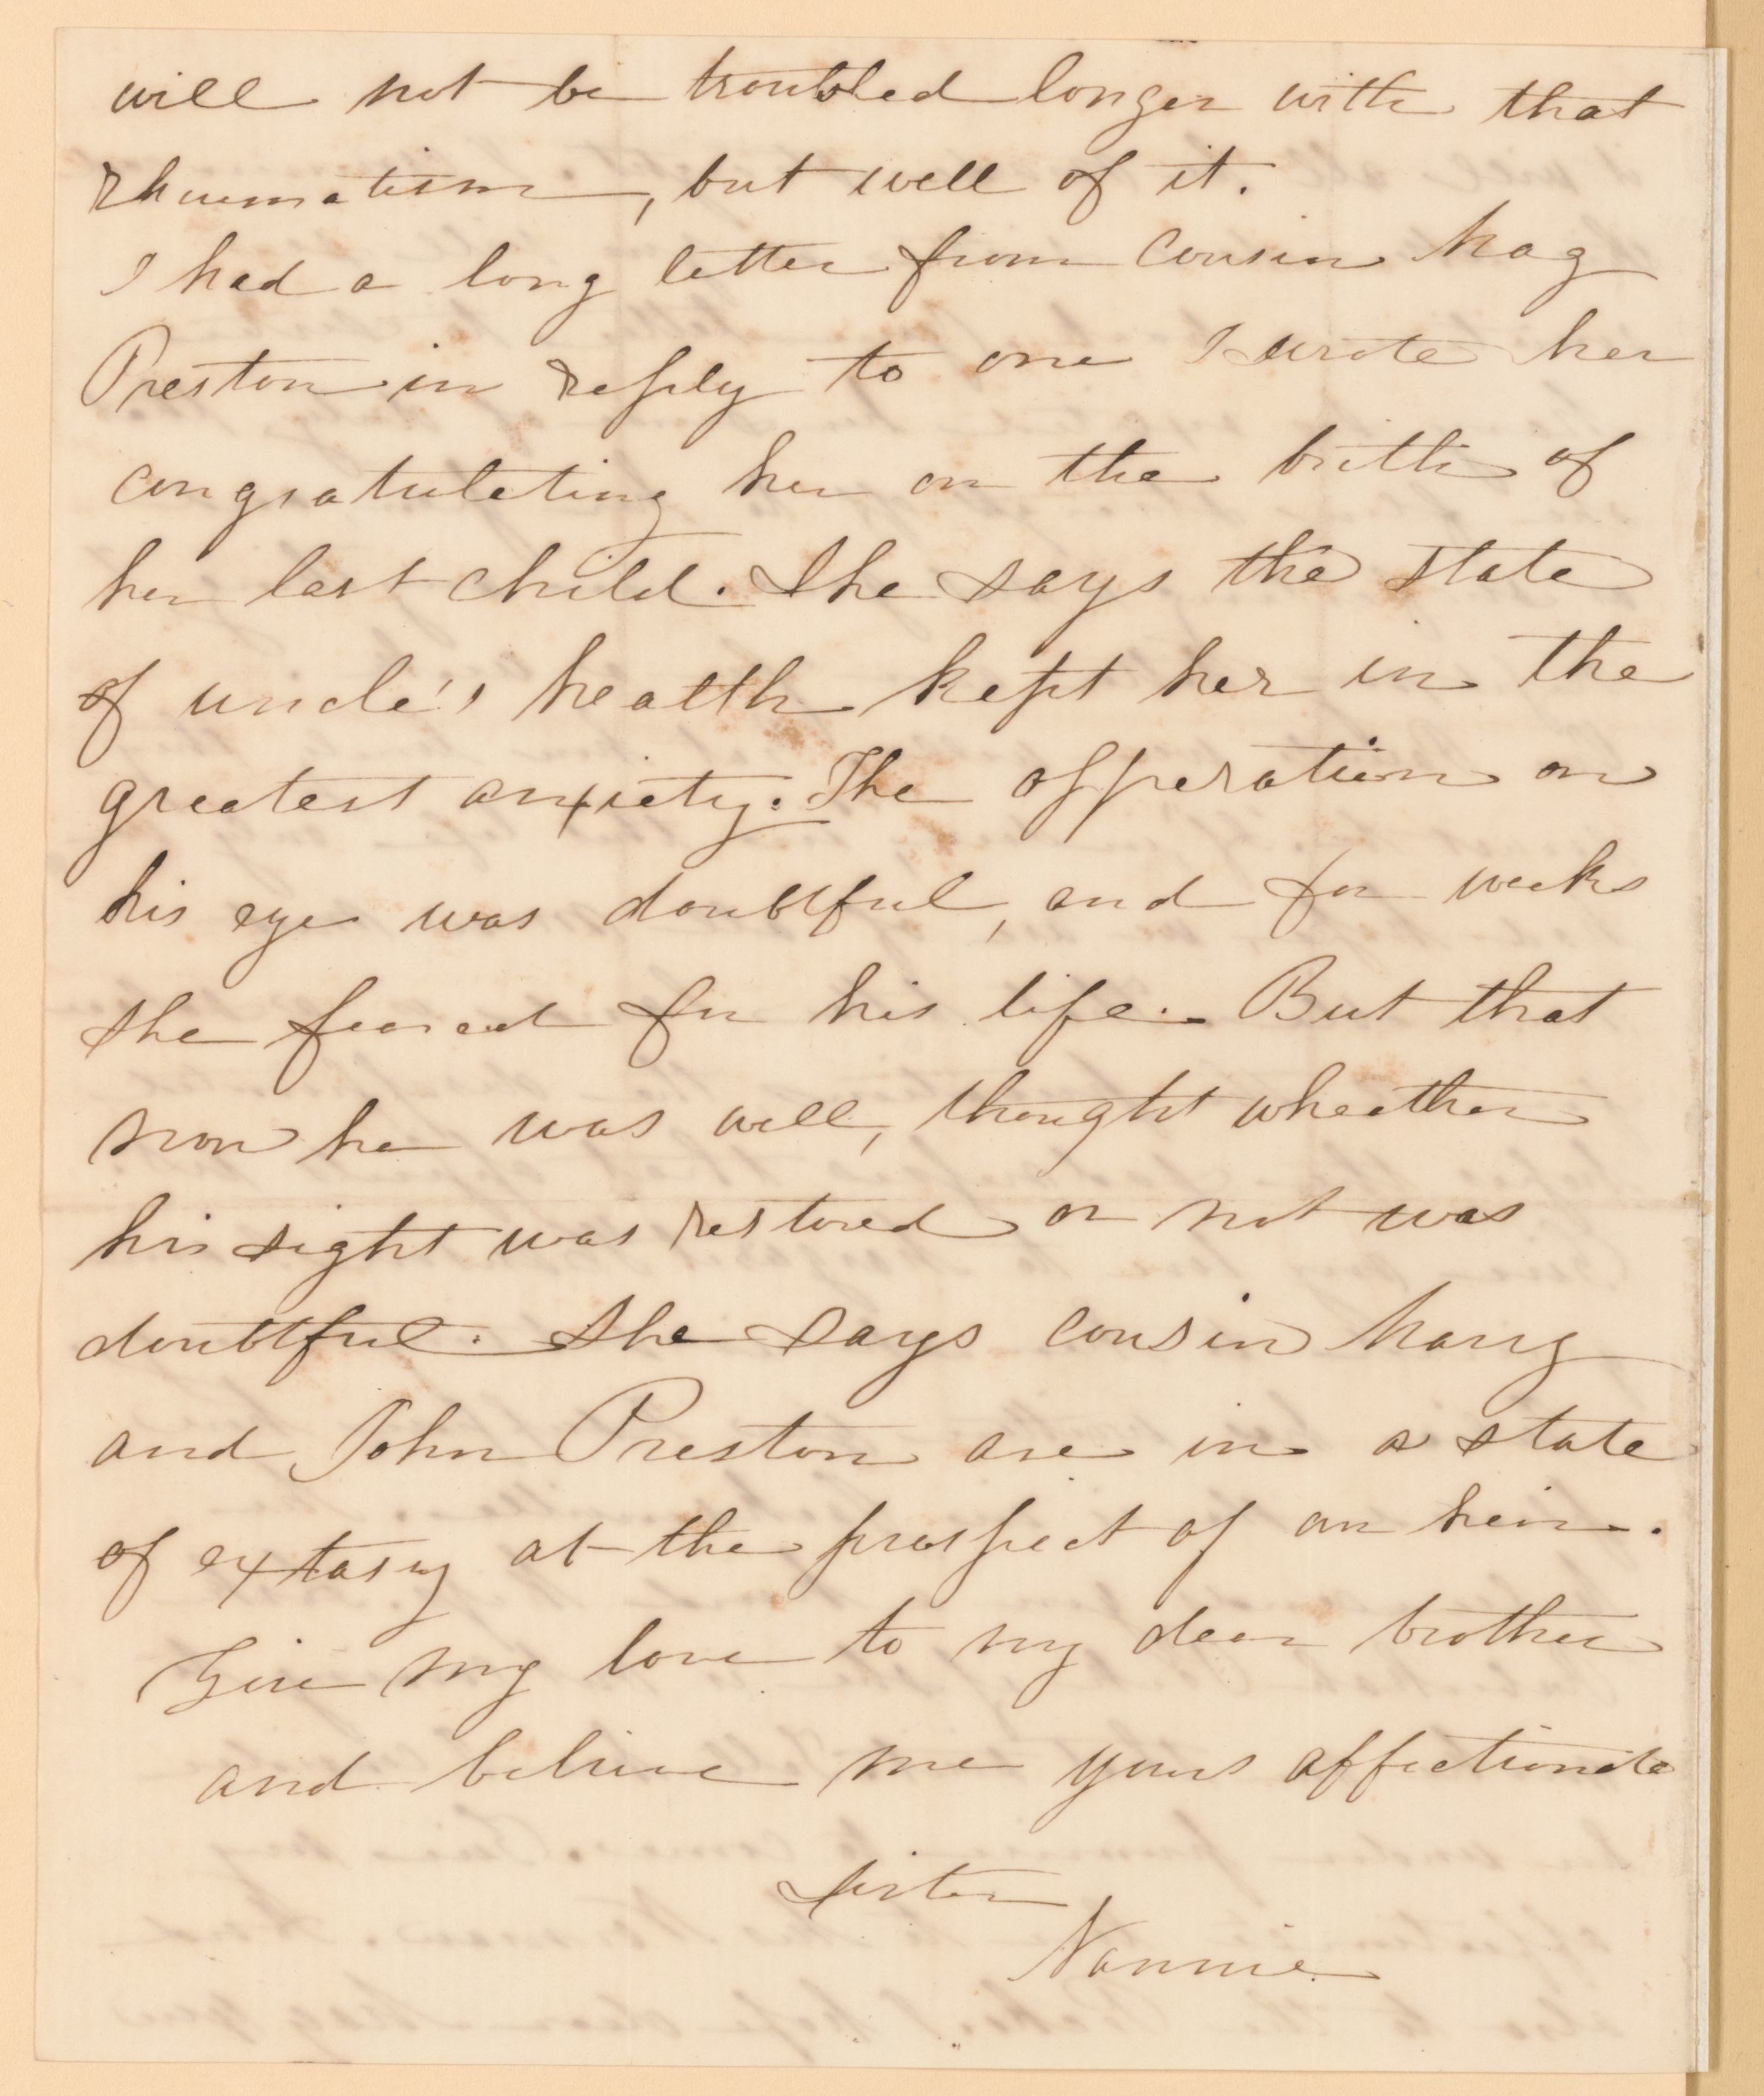 will not be troubled longer with that
rheumatism, but well of it.
I had a long letter from Cousin Mag
Preston in reply to one I wrote her
congratulating her on the birth of
her last child. She says the state
of uncle's health kept her in the
greatest anxiety. The opperation on
his eye was doubtful, and for weeks
she feared for his life. But that
now he was well, thought wheether
his sight was restored or not was
doubtful. She says cousin Mary
and John Preston are in a state
of extasy at the prospect of an heir.
Give my love to my dear brother
and believe me yours affectionate
sister
Nannie